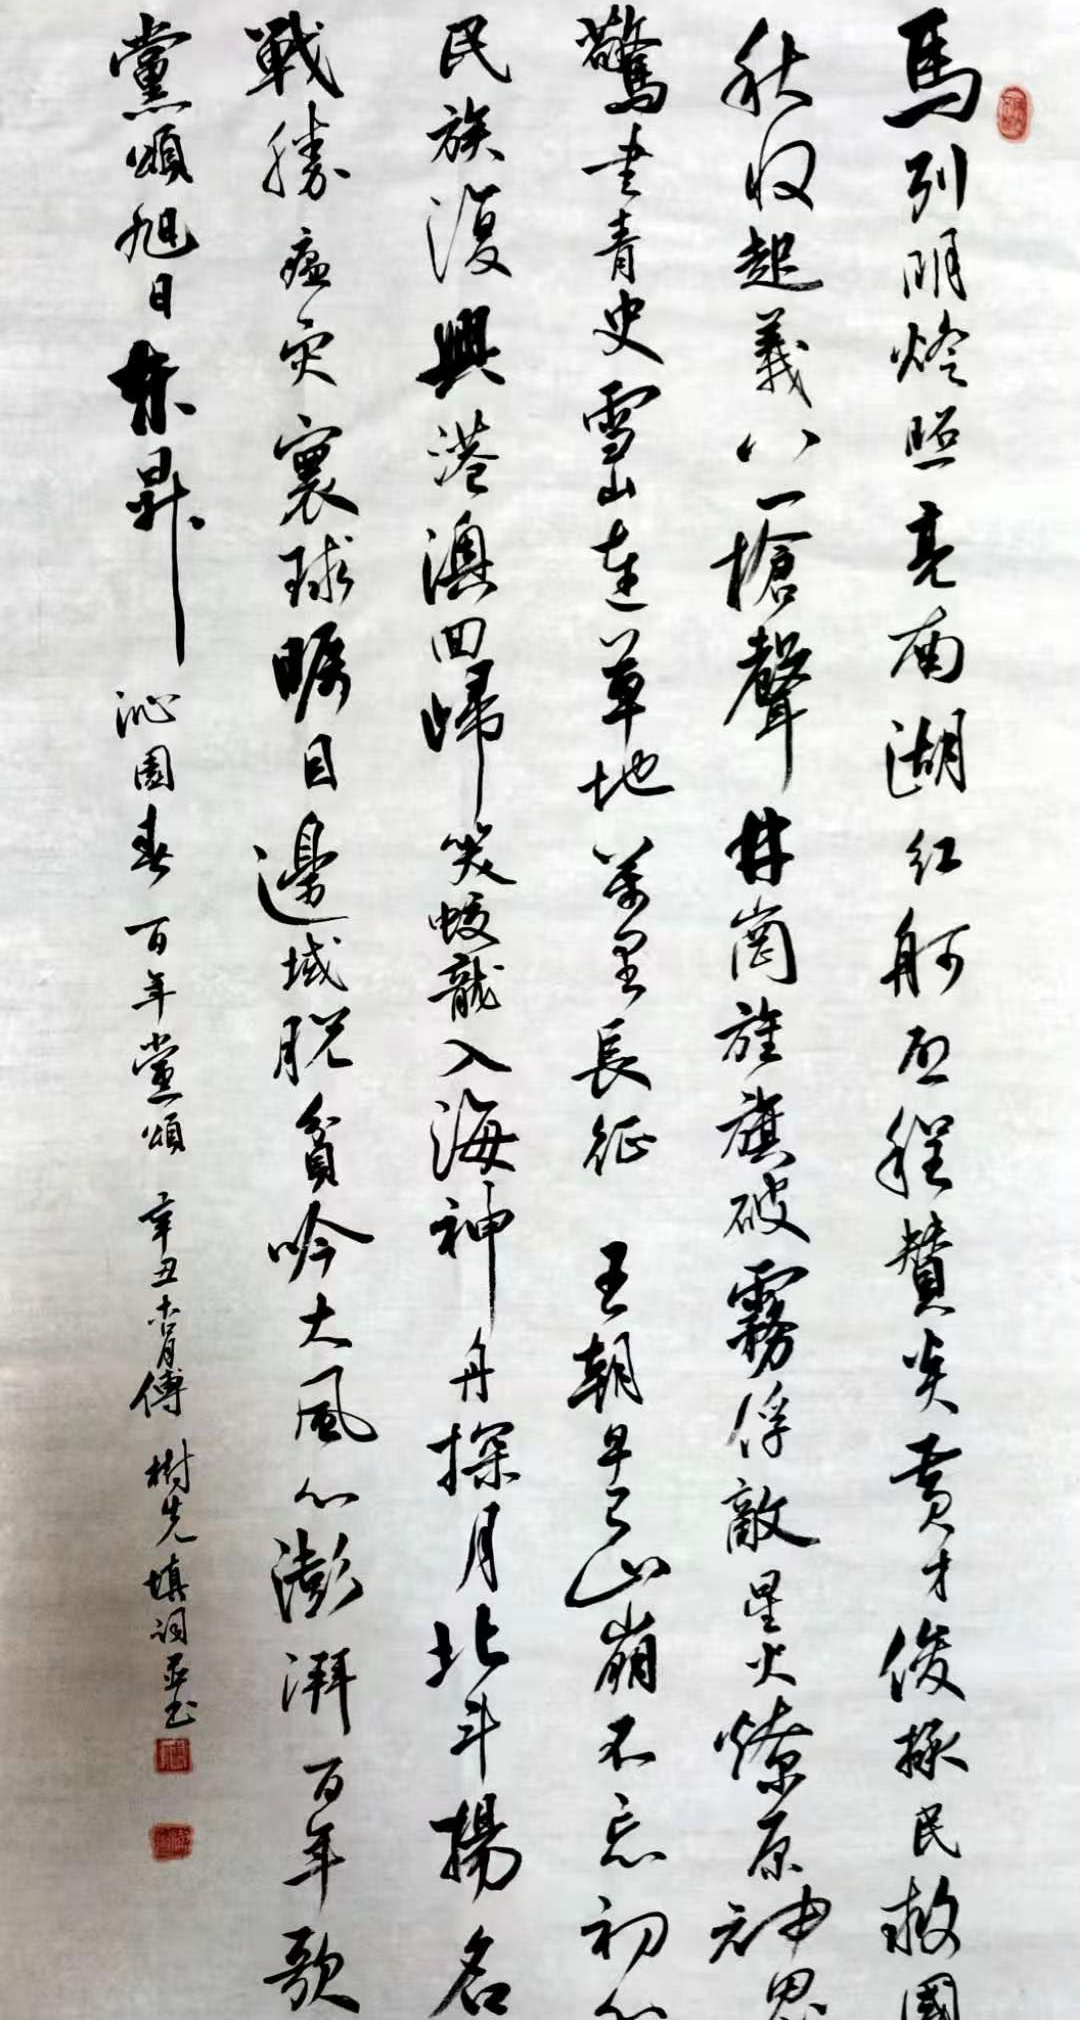 馬列明燈照亮南湖紅舸啟程贊炎黃才俊拯民救國
秋收起義八一槍聲井崗旌旗破霧俘敵星火燎原神思
驚書青史雪山連草地萬里長征王朝早已山崩不忘初心
民族復興港澳回歸笑蛟龍入海神舟探月北斗揚名
戰勝瘟灾寰球矚目邊域脫貧吟大風心澎湃百年歌
黨頌旭日東昇
沁園春 百年黨頌 辛丑 月傅樹先填詞並書